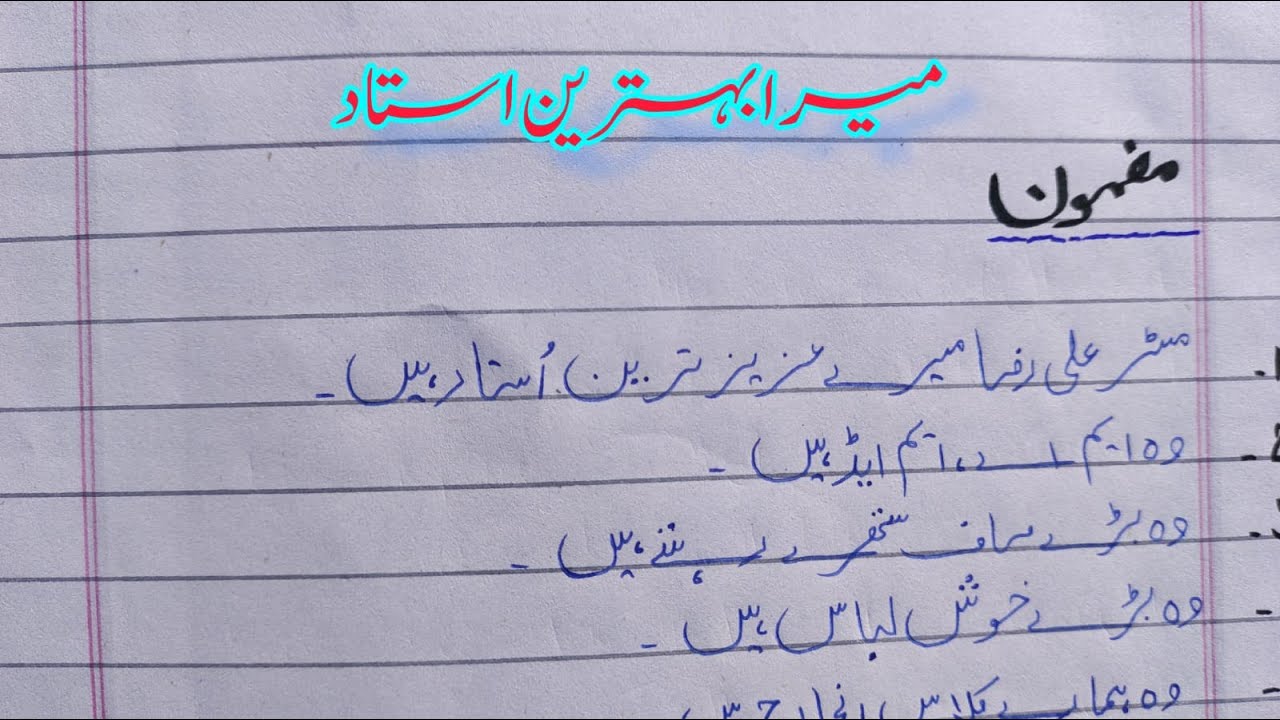 میرا بہترین استاد
مضمون
1. مسٹر علی رضا میرے عزیز ترین اُستاد ہیں۔
2. وہ ایم اے، ایم ایڈ ہیں۔
3. وہ بڑے صاف ستھرے رہتے ہیں۔
- وہ بڑے خوش لباس ہیں۔
- وہ ہمارے کلاس انچارج ہیں